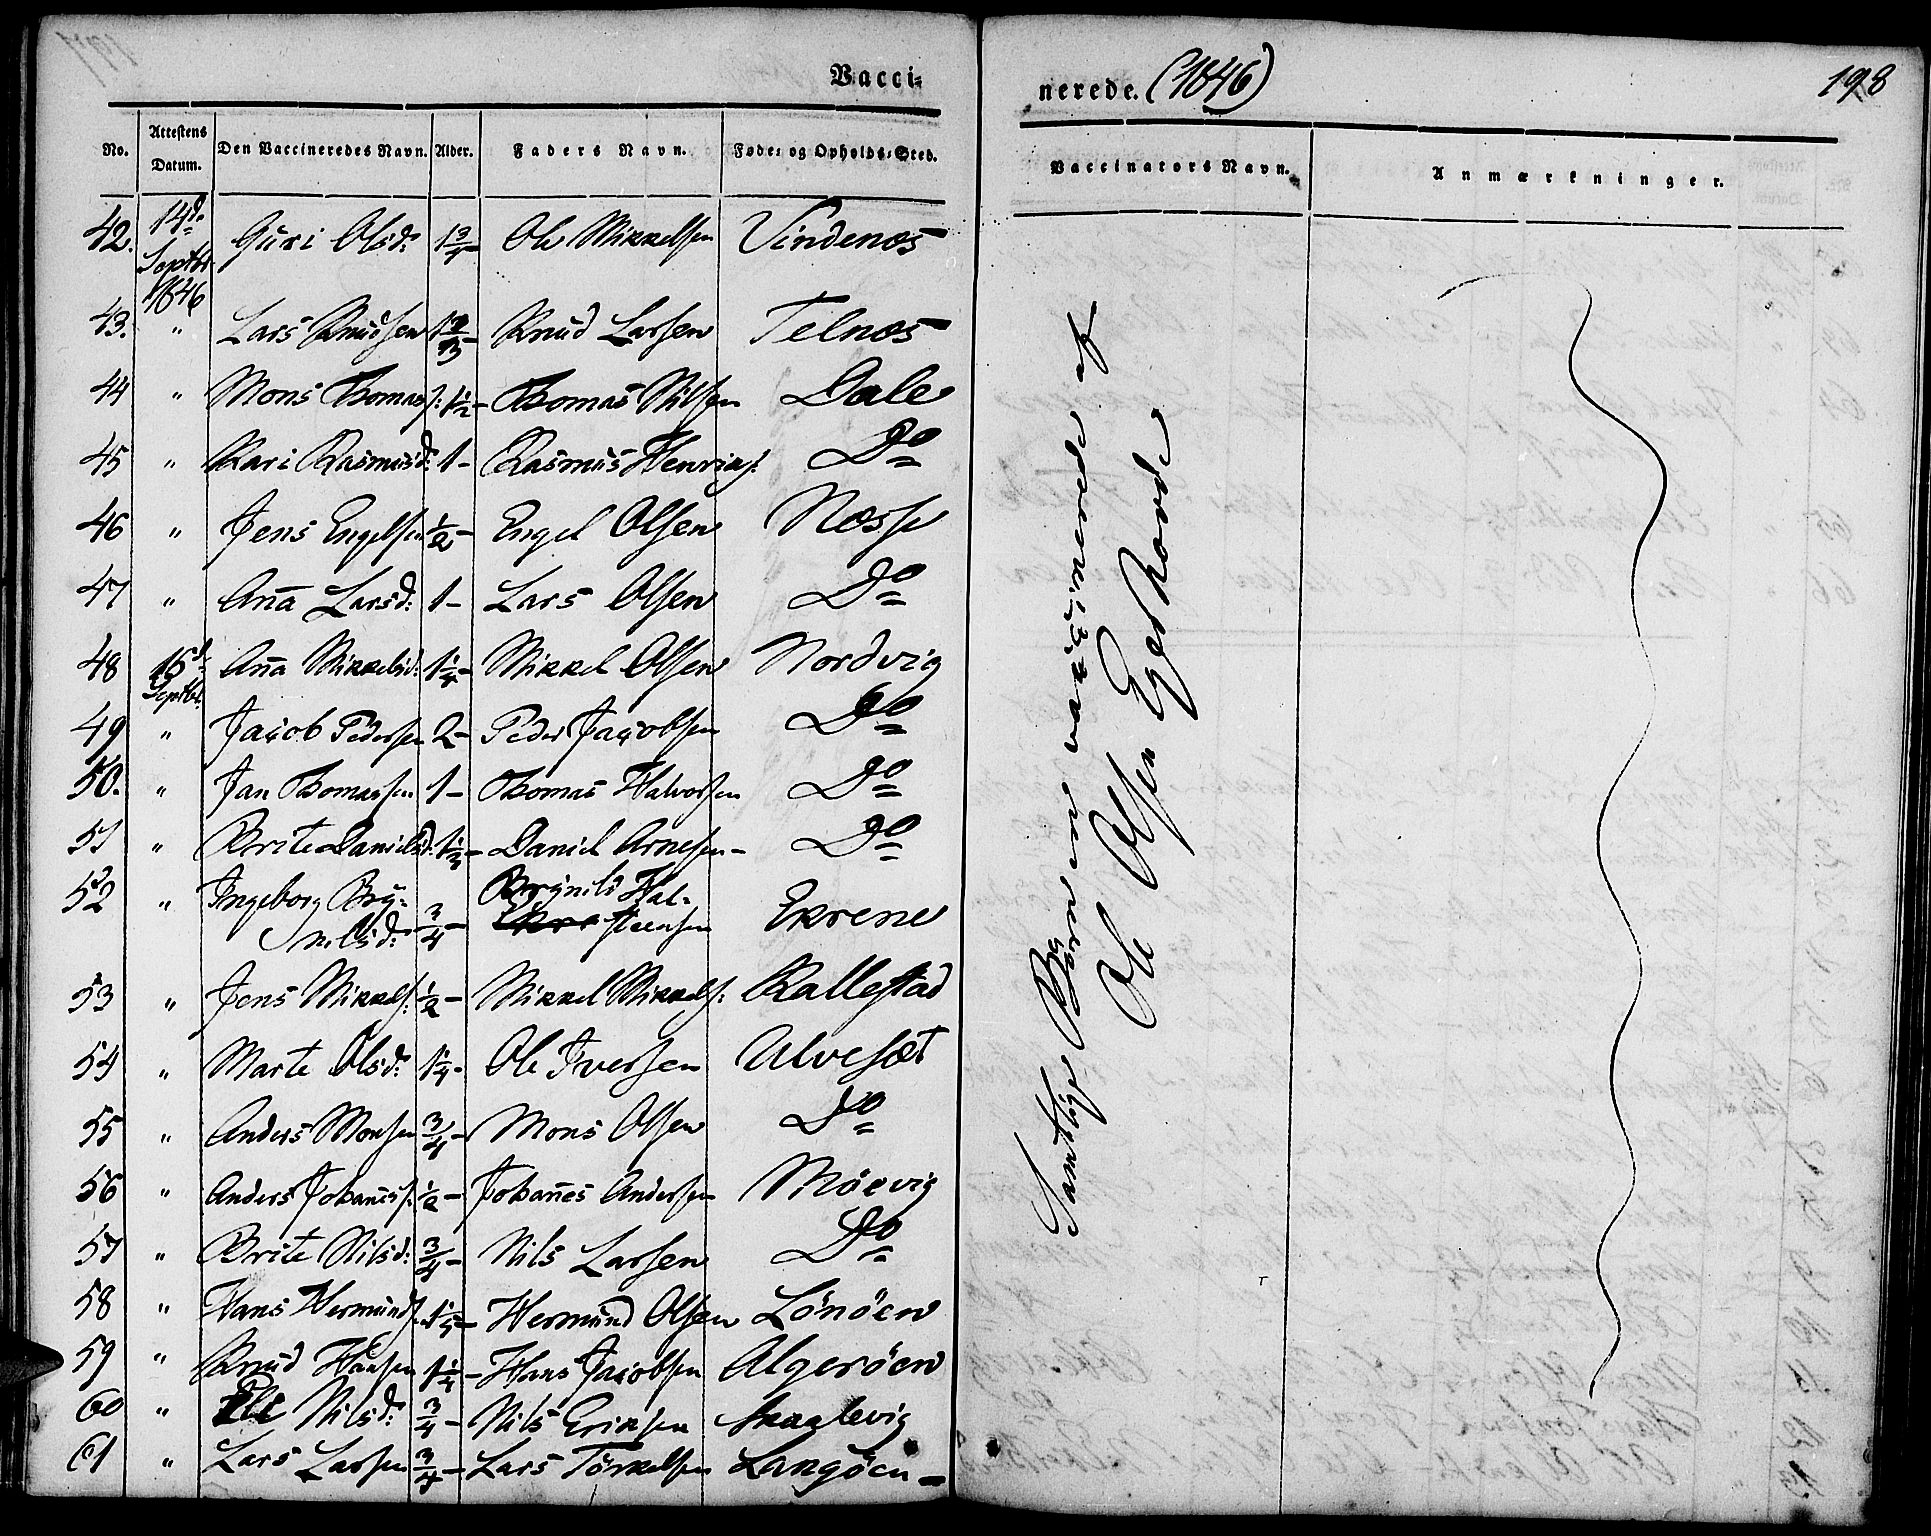 Vacci=
nerede. (1846)
198
No. Attestens Datum. Den Vaccineredes Navn. Alder. Faders Navn. Føde= og Opholds=Sted. Vaccinators Navn. Anmærkninger.
42. 14d. Septbr 1846 Guri Olsd: 1 3/4 Ole Mikkelsen Vindenæs
43. " Lars Knudsen Knud Larsen Telnæs
44 " Mons Thomass: 1 1/2 – Thomas Nilsen Dale
45 " Kari Rasmusd: 1 – Rasmus Henriks: Do
46 " Jens Engelsen 1/2 – Engel Olsen Næsse
47 " Aña Larsd: 1 – Lars Olsen Do
48 15d. Septbr. Aña Mikkelsd: 1 1/4 – Mikkel Olsen Nordvig
49 " Jacob Pedersen 2 – Peder Jacobsen Do
50. " Jan Thomassen 1 – Thomas Halvorsen Do
51 " Brite Danielsd: 1 1/3 – Daniel Arnesen – Do
52 " Ingeborg Bry=
nilsd: 3/4 – Brynild Hal=
steensen Ekrene
53 " Jens Mikkels: 1/2 – Mikkel Mikkels: Kallestad
54 " Marte Olsd: 1 1/4 – Ole Iversen Ulvesæt
55 " Anders Monsen 3/4 – Mons Olsen Do
56 " Anders Johañess: 1/2 – Johañes Andersen Möevig
57 " Brite Nilsd: 3/4 – Nils Larsen Do
58 " Hans Hermunds: 1 1/5 – Hermund Olsen Lönöen
59 " Knud Hansen 1 1/4 – Hans Jacobsen Algeröen
60 " Eli Nilsd: 3/4 – Nils Eriksen Skaglevig
61 " Lars Larsen 3/4 – Lars Törkelsen Langöen –
Samtlige Börn ere vaccinerede af
Ole Olsen Eger